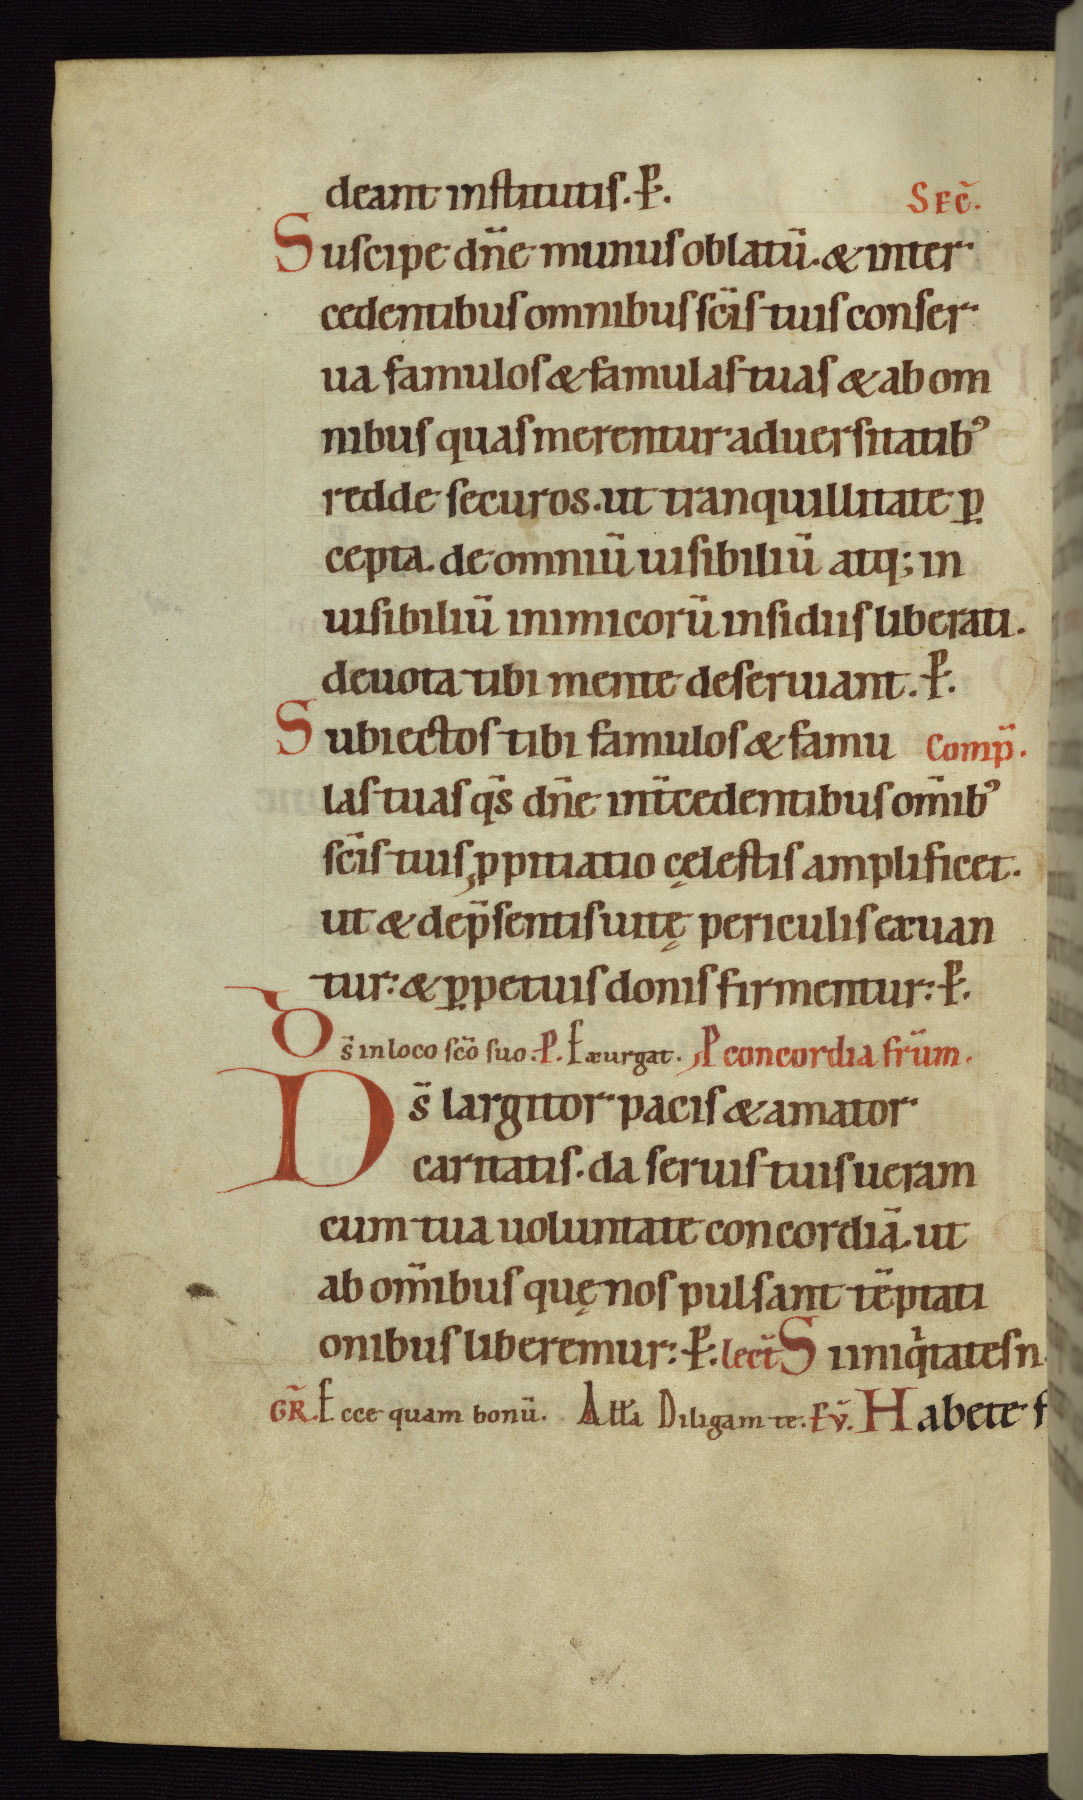 deant institutis. P. SEC̄.
Suscipe dn̄e munus oblatū. & inter
cedentibus omnibus sc̄is tuis conser
ua famulos & famulas tuas & ab om
nibus quas merentur aduersitatib᾽
redde securos. ut tranquillitate ꝑ
cepta. de omniū uisibiliū atq; in
uisibiliū inimicorū insidiis liberati.
deuota tibi mente deseruiant. P.
Subiectos tibi famulos & famu Comp̄.
las tuas q̄s dn̄e int̄cedentibus om̄ib᾽
sc̄is tuis ꝓpitiatio cęlestis amplificet.
ut & de p̄sentis uitę periculis exuan
tur: & ꝑpetuis donis firmentur: P.
Ds̄ in loco sc̄o suo. P. Exurgat. P concordia fr̄um.
Ds̄ largitor pacis & amator
caritatis. da seruis tuis ueram
cum tua uoluntate concordiā. ut
ab om̄ibus quę nos pulsant tēptati
onibus liberemur: P. lect̄ Si iniq̇tates n
GR̄. Ecce quam bonū. All̄a Diligam te. Ev̄. Habete f